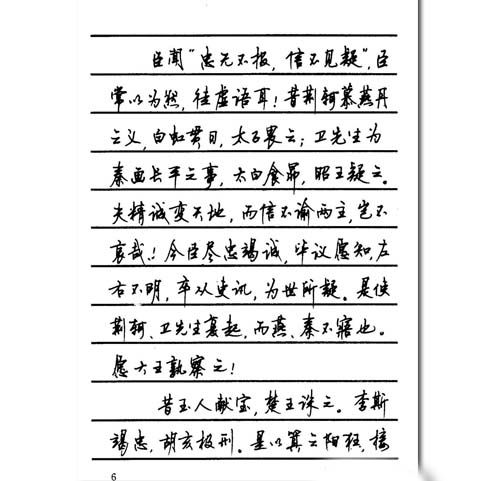 臣闻“忠无不报，信不见疑”，臣
常以为然，徒虚语耳！昔荆轲慕燕丹
之义，白虹贯日，太子畏之；卫先生为
秦画长平之事，太白食昴，昭王疑之。
夫精诚变天地，而信不谕两主，岂不
哀哉！今臣尽忠竭诚，毕议愿知，左
右不明，卒从吏讯，为世所疑。是使
荆轲、卫先生复起，而燕、秦不寤也。
愿大王孰察之！
昔玉人献宝，楚王诛之。李斯
竭忠，胡亥极刑。是以箕子阳狂，接
6